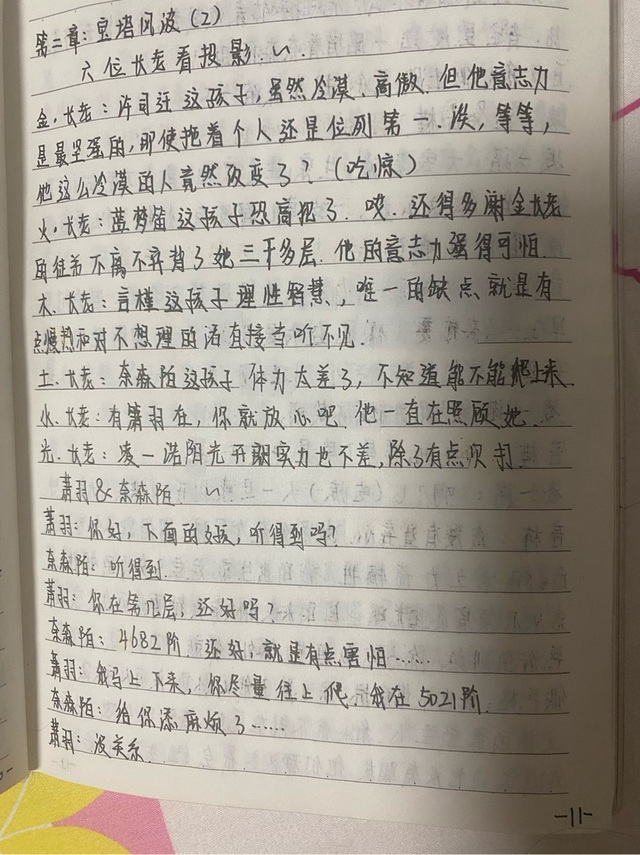 第二章：宝塔风波（2）
六位长老看投影.
金.长老：许司迁这孩子，虽然冷漠、高傲.但他意志力
是最坚强的，即使拖着个人还是位列第一.诶，等等，
他这么冷漠的人竟然改变了？（吃惊）
火.长老：蓝梦笛这孩子恐高犯了.哎.还得多谢金长老
的徒弟不离不弃背了她三千多层.他的意志力强得可怕.
木.长老：言槿这孩子理性智慧，唯一的缺点就是有
点慢热和对不想理的话直接当听不见.
土.长老：奈森陌这孩子体力太差了，不知道能不能爬上来.
水.长老：有箫羽在，你就放心吧.他一直在照顾她.
光.长老：凌一诺阳光开朗实力也不差，除了有点欠打.
萧羽&奈森陌.
萧羽：你好，下面的女孩，听得到吗？
奈森陌：听得到.
萧羽：你在第几层，还好吗？
奈森陌：4682阶.还好，就是有点害怕……
萧羽：我马上下来，你尽量往上爬.我在5021阶.
奈森陌：给你添麻烦了……
萧羽：没关系.
-11-